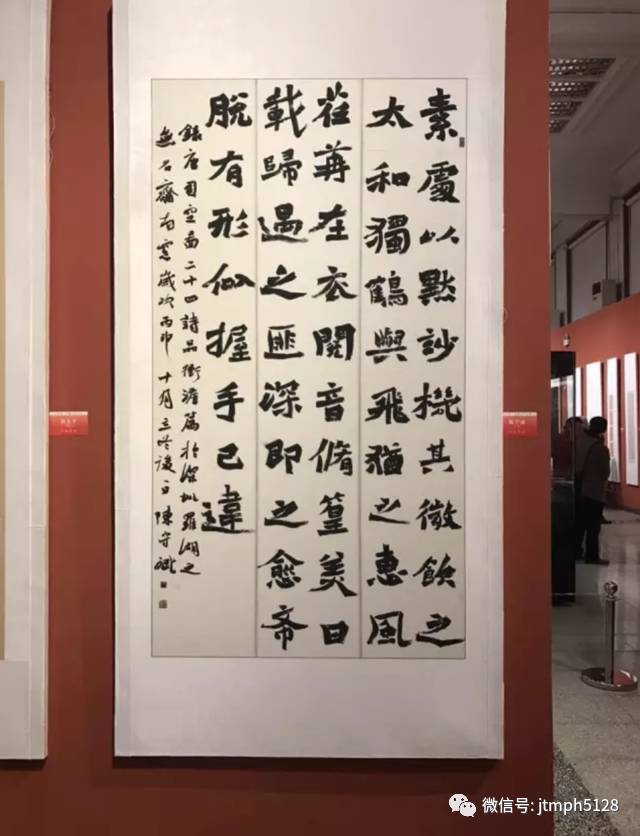 素處以默玅機其微飲之
太和獨鶴與飛猶之惠風
荏苒在衣閱音脩篁美曰
載歸遇之匪深即之愈希
脫有形似握手已違
錄唐司空圖二十四詩品衝澹篇於深圳羅湖之
無名齋南窗歲次丙申十月立冬後日陳守斌
微信号: jtmph5128